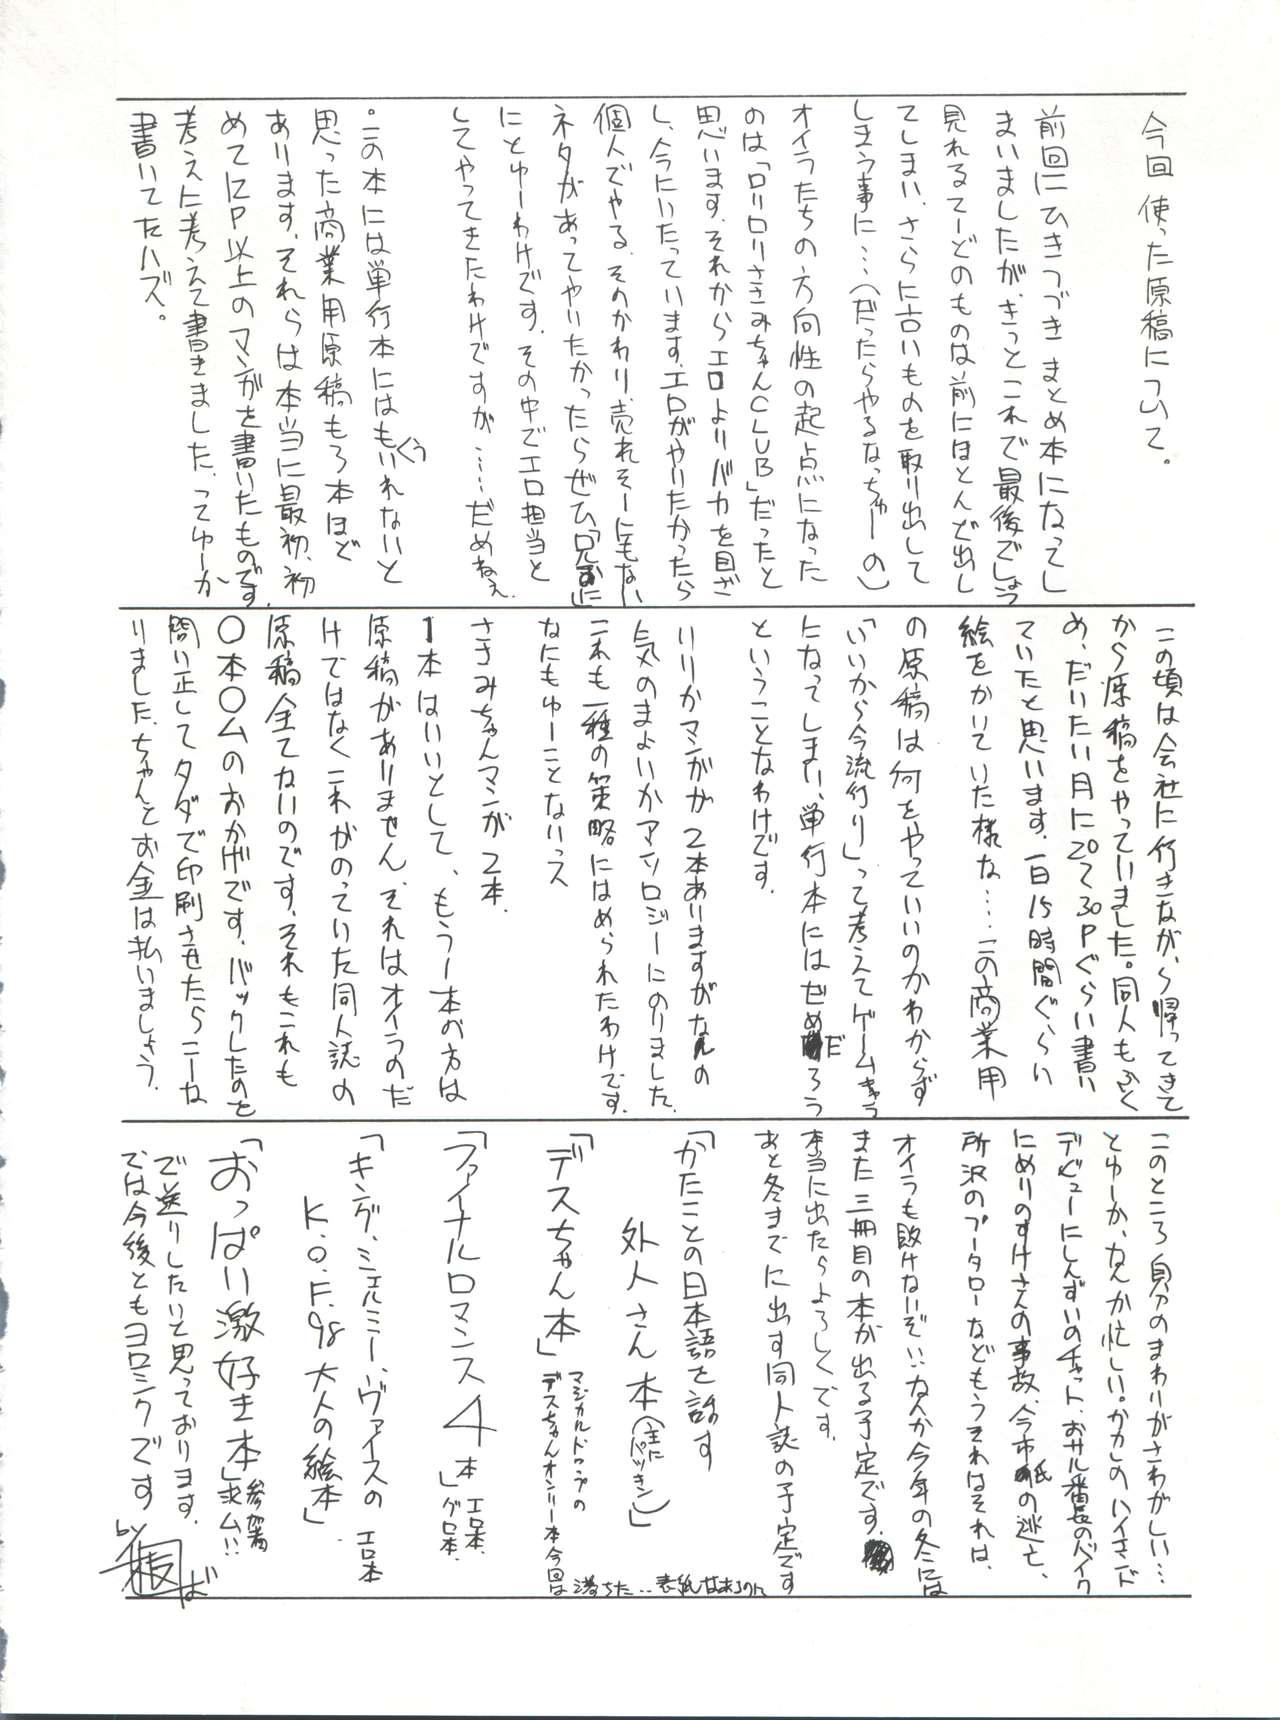 今回使った原稿について。
前回にひきつづきまとめ本になってし
まいましたが、きっとこれで最後でしょう
見れるてーどのものは前にほとんど出し
てしまい、さらに古いものを取り出して
しまう事に…(だったらやるなっちゅーの)
オイラたちの方向性の起点になった
のは「ロリロリさきみちゃんCLUB」だったと
思います。それからエロよりバカを目ざ
し、今にいたっています。エロがやりたかったら
個人でやる、そのかわり、売れそーにもない
ネタがあってやりたかったらぜひ
にとゆーわけです。その中でエロ担当と
してやってきたわけですが……だめねぇ
。この本には単行本にはもういれないと
思った商業用原稿も5本ほど
あります。それらは本当に最初、初
めて12P以上のマンガを書いたものです。
考えに考えて書きました、ってゆーか
書いてたハズ。
この頃は会社に行きながら帰ってきて
から原稿をやっていました。同人もふく
め、だいたい月に20〜30Pぐらい書い
ていたと思います。一日15時間ぐらい
絵をかいていた様な……この商業用
の原稿は何をやっていいのかわからず
「いいから今流行り」って考えてゲーム
になってしまい、単行本にはだめだろう
ということなわけです。
りりかマンガが2本ありますがなんの
気のまよいかアンソロジーにのりました
これも一種の策略にはめられたわけです。
なにもゆーことないっス
さきみちゃんマンガ2本。
1本はいいとして、もう一本の方は
原稿がありません。それはオイラのだ
けではなくこれがのっていた同人誌の
原稿全てないのです。それもこれも
〇本〇ムのおかげです。バックしたのを
問い正してタダで印刷させたらこーな
りました。ちゃんとお金は払いましょう。
このところ自分のまわりがさわがしい…
とゆーか、なんか忙しい。かカしのハイエンド
デビューにしんずいのチャット、おサル番長のバイク
にめりのすけさんの事故、今市の逃亡、
所沢のプータローなどもうそれはそれは、
オイラも敗けないぞい、なんか今年の冬には
また三冊目の本が出る予定です。
本当に出たらよろしくです。
あと冬までに出す同人誌の予定です
「かたことの日本語を話す
外人さん本(主にパツキン)」
「デスちゃん本」マジカルドロップの
デスちゃんオンリー本今回は落ちた…表紙は
「ファイナルロマンス4本」エロ本、
グロ本、
「キング、シェルミー、ヴァイスの
K.O.F.98大人の絵本」エロ本
「おっぱい激好き本」参加者
求ム!!
で送りしたいと思っております。
では今後ともヨロシクです
by